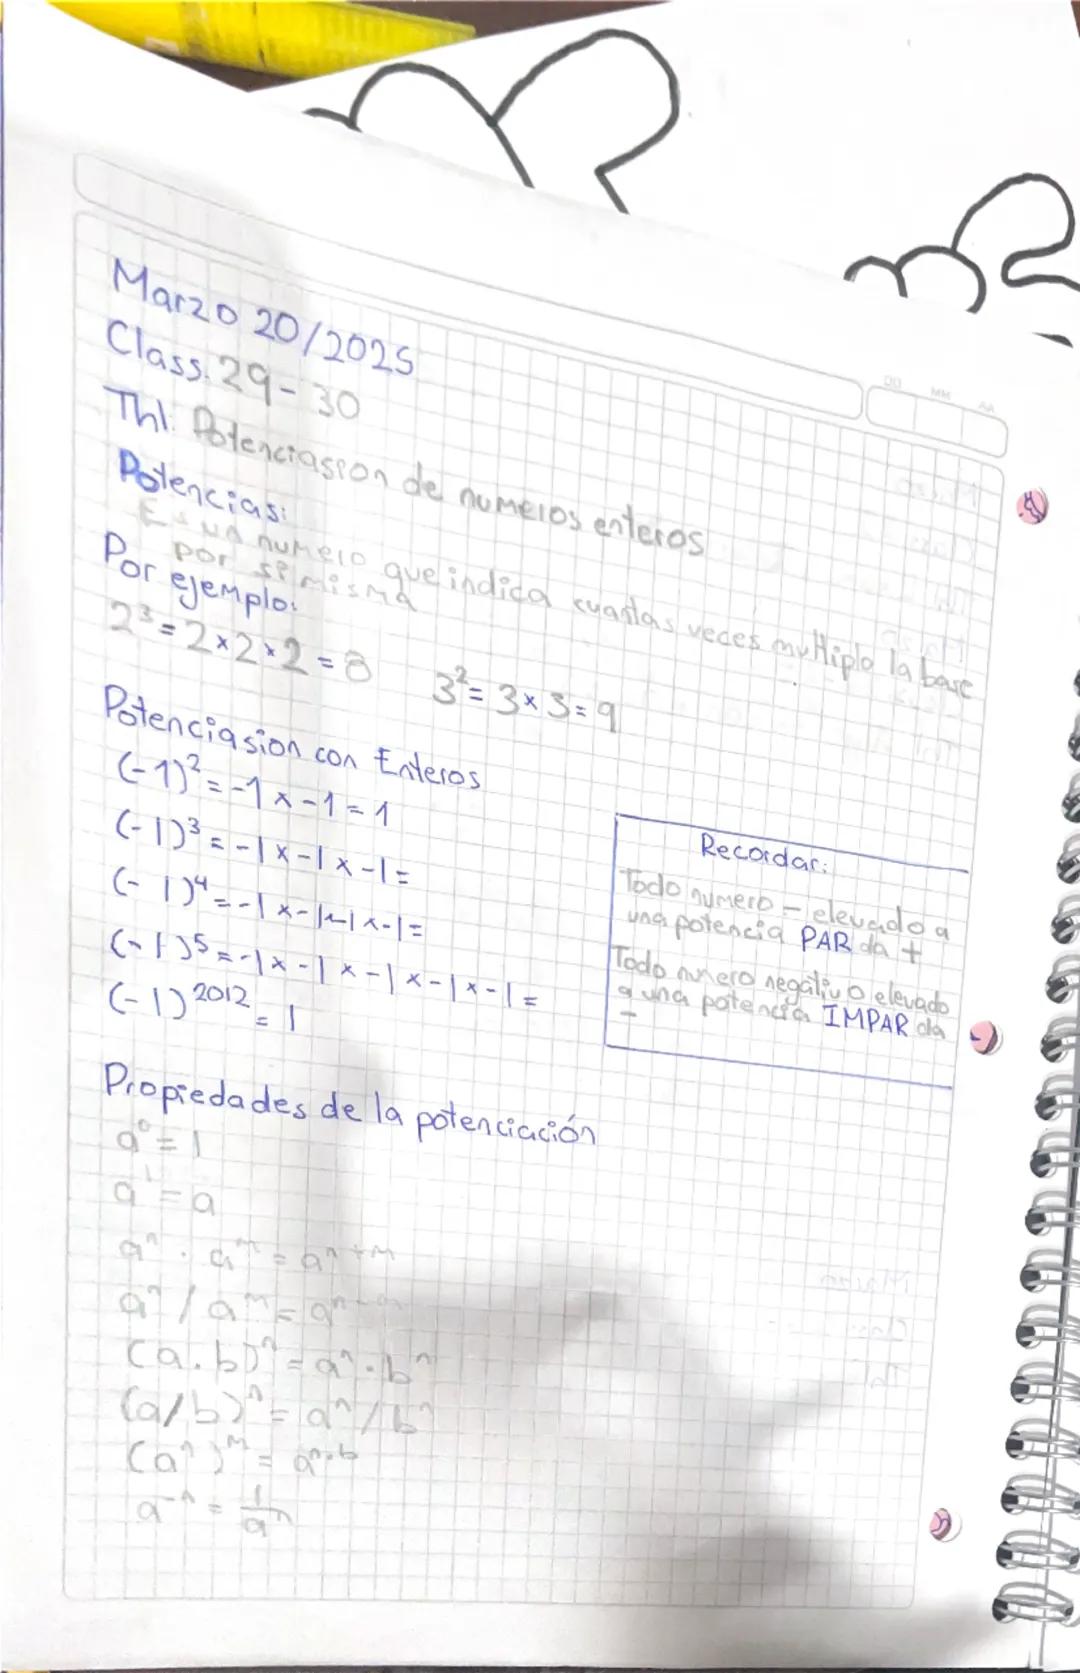 DD MM AA
Marzo 20/2025
Class. 29-30
Th1: Potenciasion de numeros enteros
Potencias:
Es un numero que indica cuantas veces multiplo la base
por si misma
Por ejemplo:
2³ = 2 × 2 × 2 = 8 3² = 3 × 3 = 9
Potenciasion con Enteros
(-1)² = -1 × -1 = 1
(-1)³ = -1 × -1 × -1 =
(-1)⁴ = -1 × -1 × -1 × -1 =
(-1)⁵ = -1 × -1 × -1 × -1 × -1 =
(-1)²⁰¹² = 1
Recordar:
Todo numero - elevado a
una potencia PAR da +
Todo numero negativo elevado
a una potencia IMPAR da
-
Propiedades de la potenciación
a⁰ = 1
a¹ = a
aⁿ · aᵐ = aⁿ⁺ᵐ
aⁿ / aᵐ = aⁿ⁻ᵐ
(a.b)ⁿ = aⁿ · bⁿ
(a/b)ⁿ = aⁿ / bⁿ
(aⁿ)ᵐ = aⁿ·ᵇ
a⁻ⁿ = 1/aⁿ